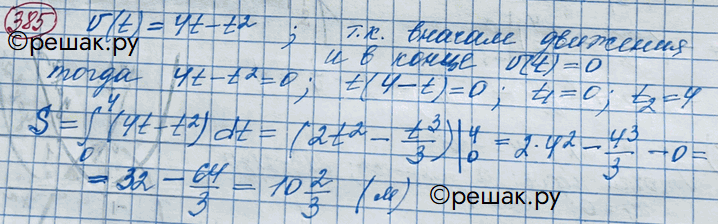 385 v(t) = 4t - t² ; т.к. вначале движения
©решак.ру и в конце v(t) = 0
тогда 4t - t² = 0 ; t(4 - t) = 0 ; t₁ = 0 ; t₂ = 4
S = ∫₀⁴ (4t - t²) dt = (2t² - t³/3) |₀⁴ = 2·4² - 4³/3 - 0 =
= 32 - 64/3 = 10 2/3 (м) ©решак.ру